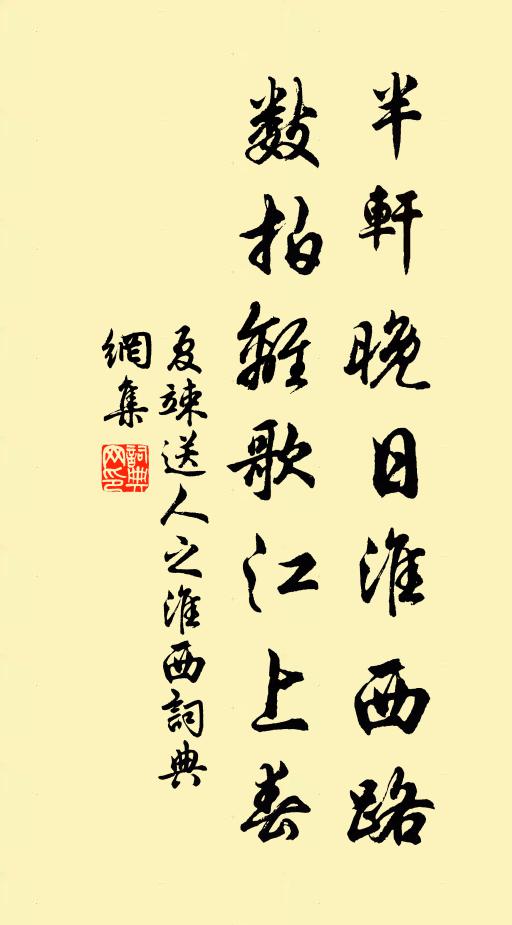 半軒晚日淮西路
數拍離歌江上春
夏竦送人之淮西詞典
網集
詞典網印